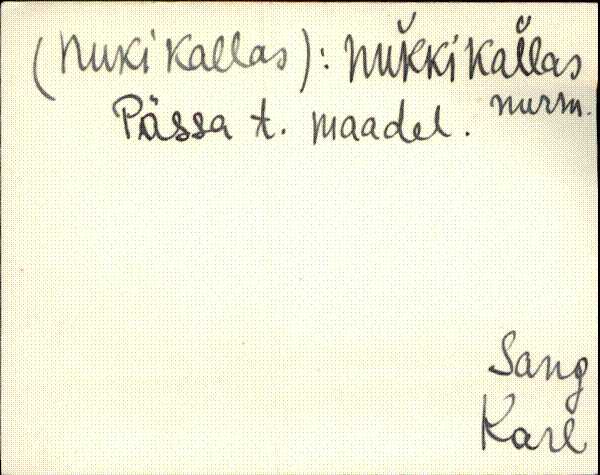 (nuki kallas): nŭkki kal̆las
nurm.
Pässa t. maadel.
Sang
Karl